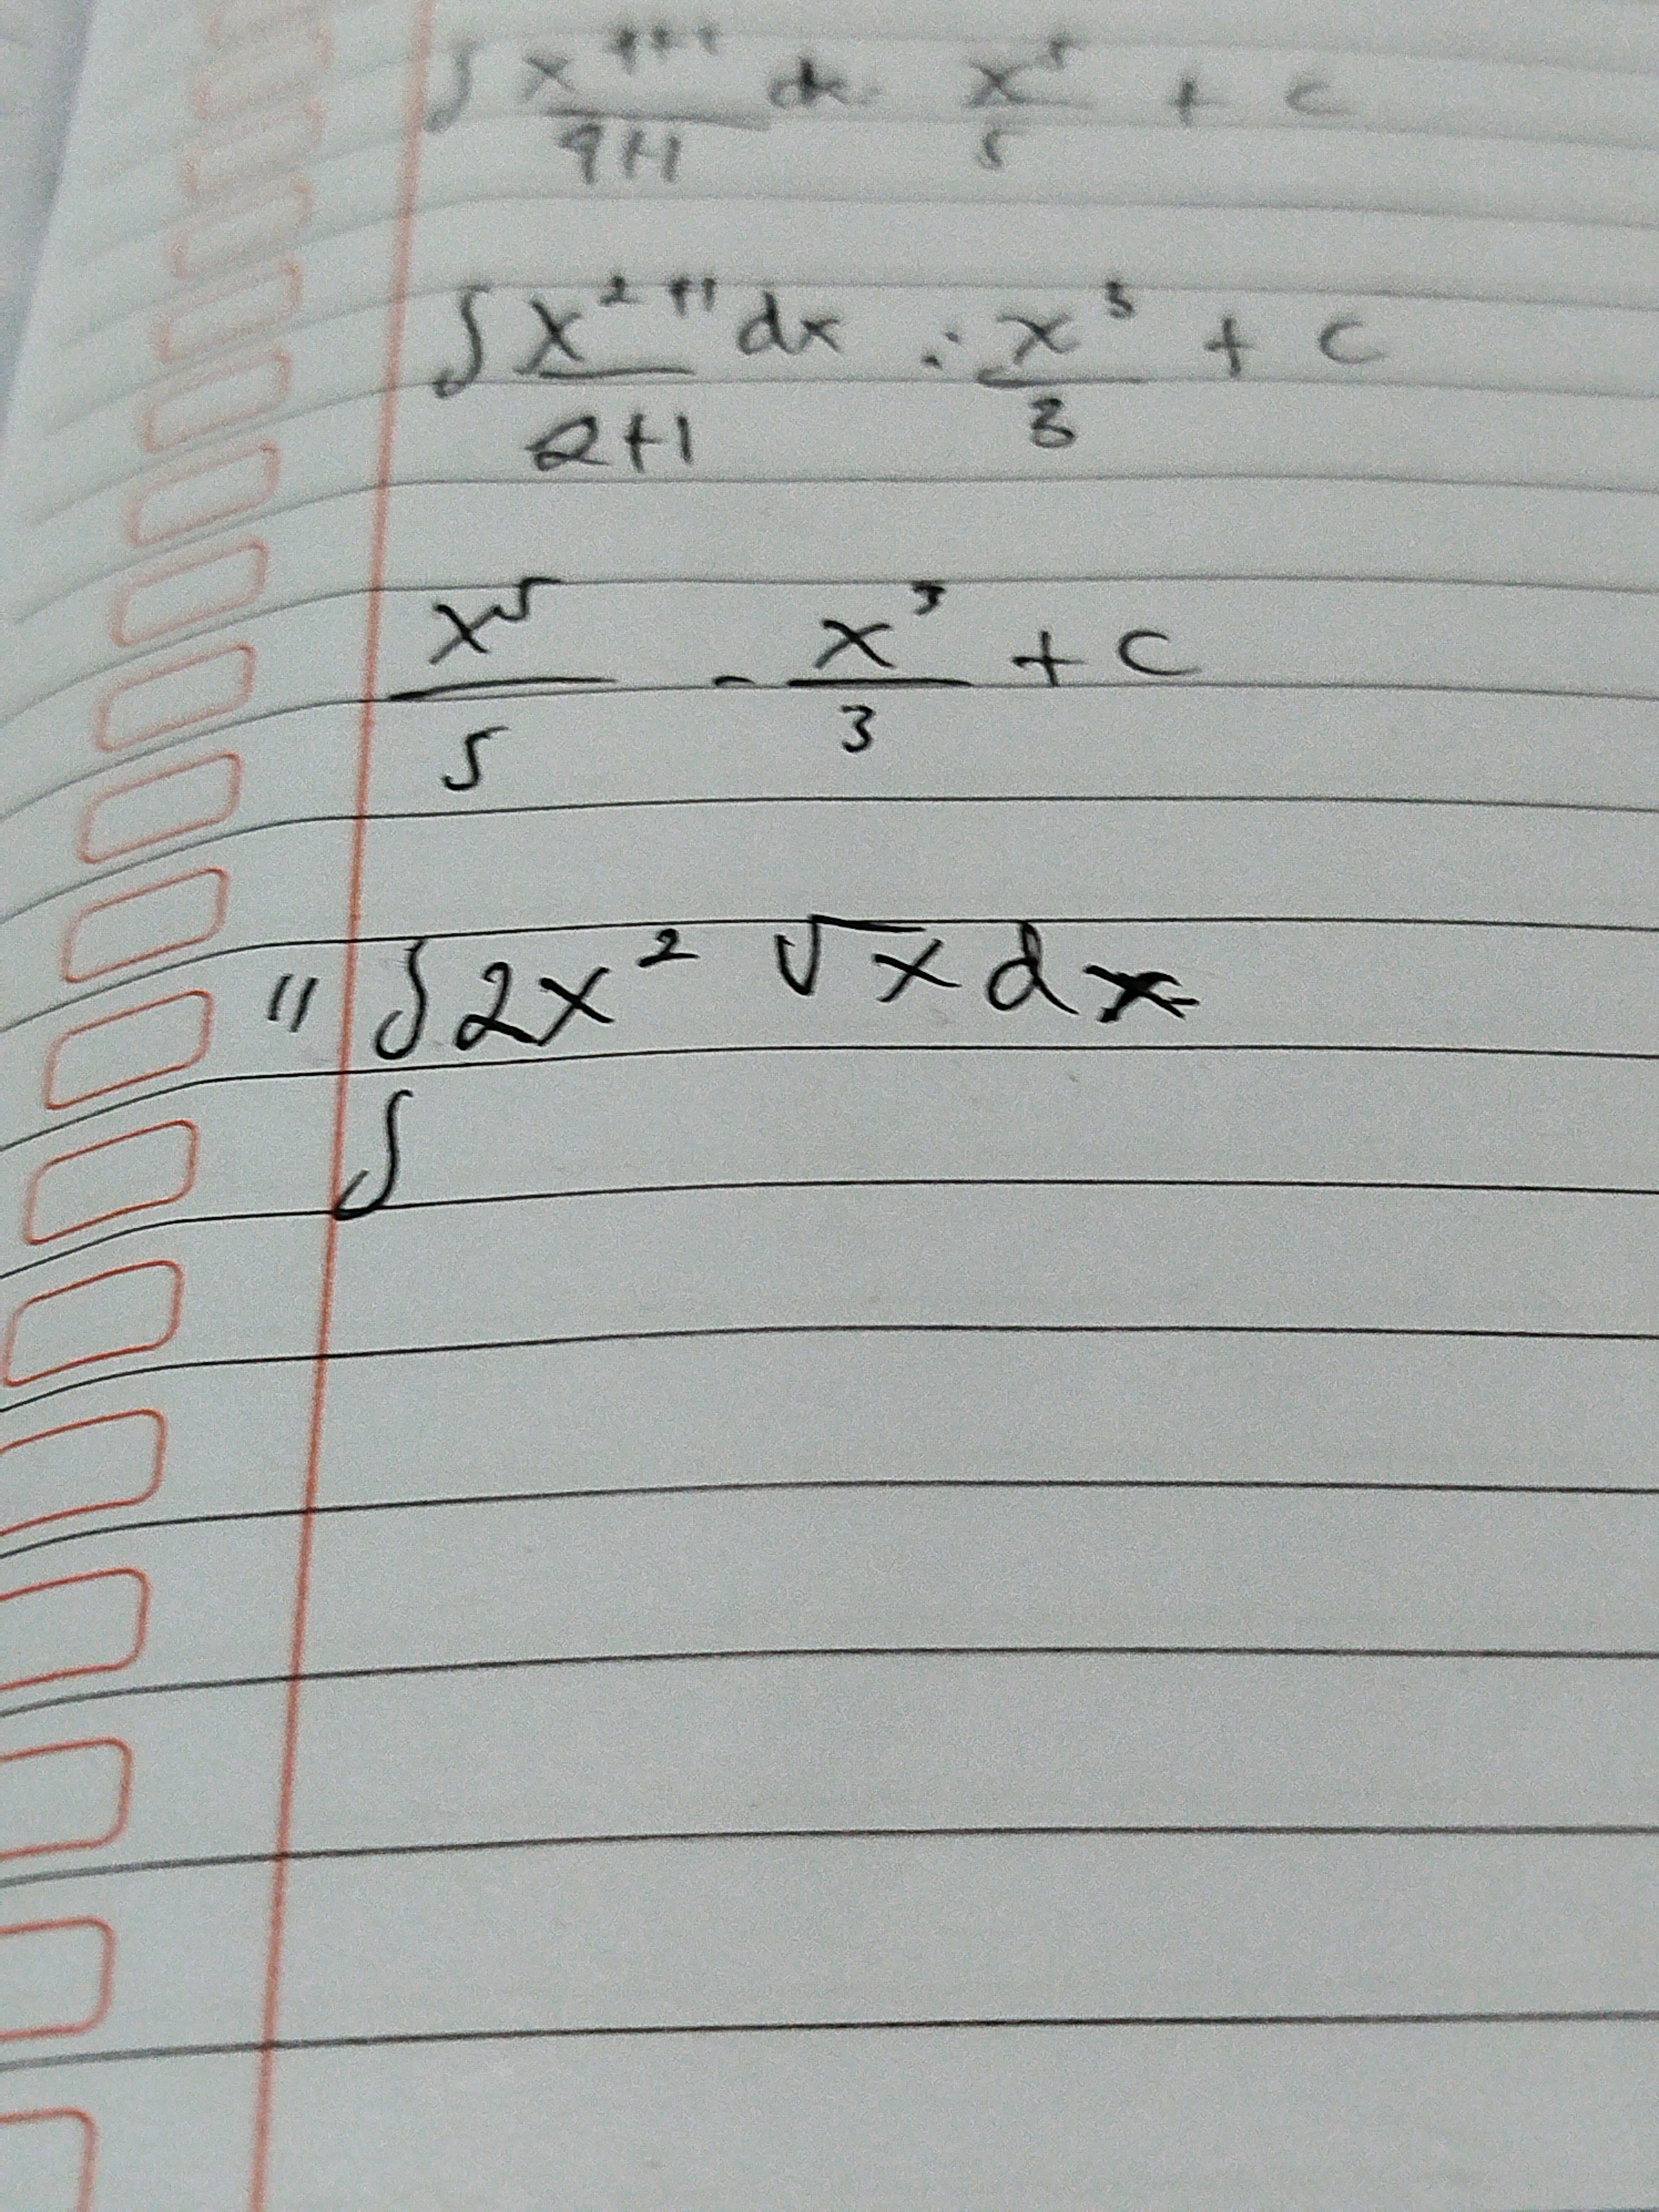 ∫ x⁴⁺¹/4+1 dx . x⁵/5 + c
∫ x²⁺¹/2+1 dx ∴ x³/3 + c
x⁵/5 - x³/3 + c
" ∫2x² √x dx
∫